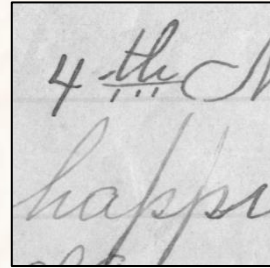 4th
happi